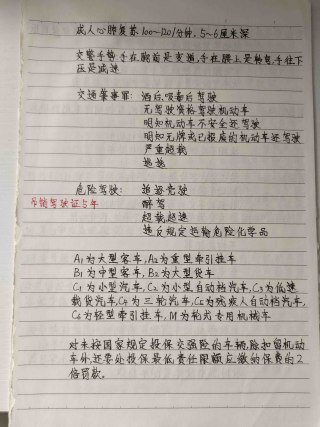 成人心肺复苏 100~120/分钟，5~6厘米深
交警手势 手在胸前是变道，手在腰上是转弯，手往下
压是减速
交通肇事罪：酒后、吸毒后驾驶
无驾驶资格驾驶机动车
明知机动车不安全还驾驶
明知无牌或已报废的机动车还驾驶
严重超载
逃逸
危险驾驶：追逐竞驶
吊销驾驶证5年 醉驾
超载，超速
违反规定运输危险化学品
A1为大型客车，A2为重型牵引挂车
B1为中型客车，B2为大型货车
C1为小型汽车，C2为小型自动档汽车，C3为低速
载货汽车，C4为三轮汽车，C5为残疾人自动档汽车，
C6为轻型牵引挂车，M为轮式专用机械车
对未按国家规定投保交强险的车辆，除扣留机动
车外，还要处投保最低责任限额应缴的保费的2
倍罚款。